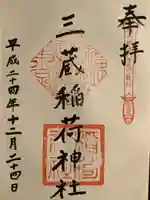 奉拝
三蔵稲荷神社
平成二十四年十二月二十四日